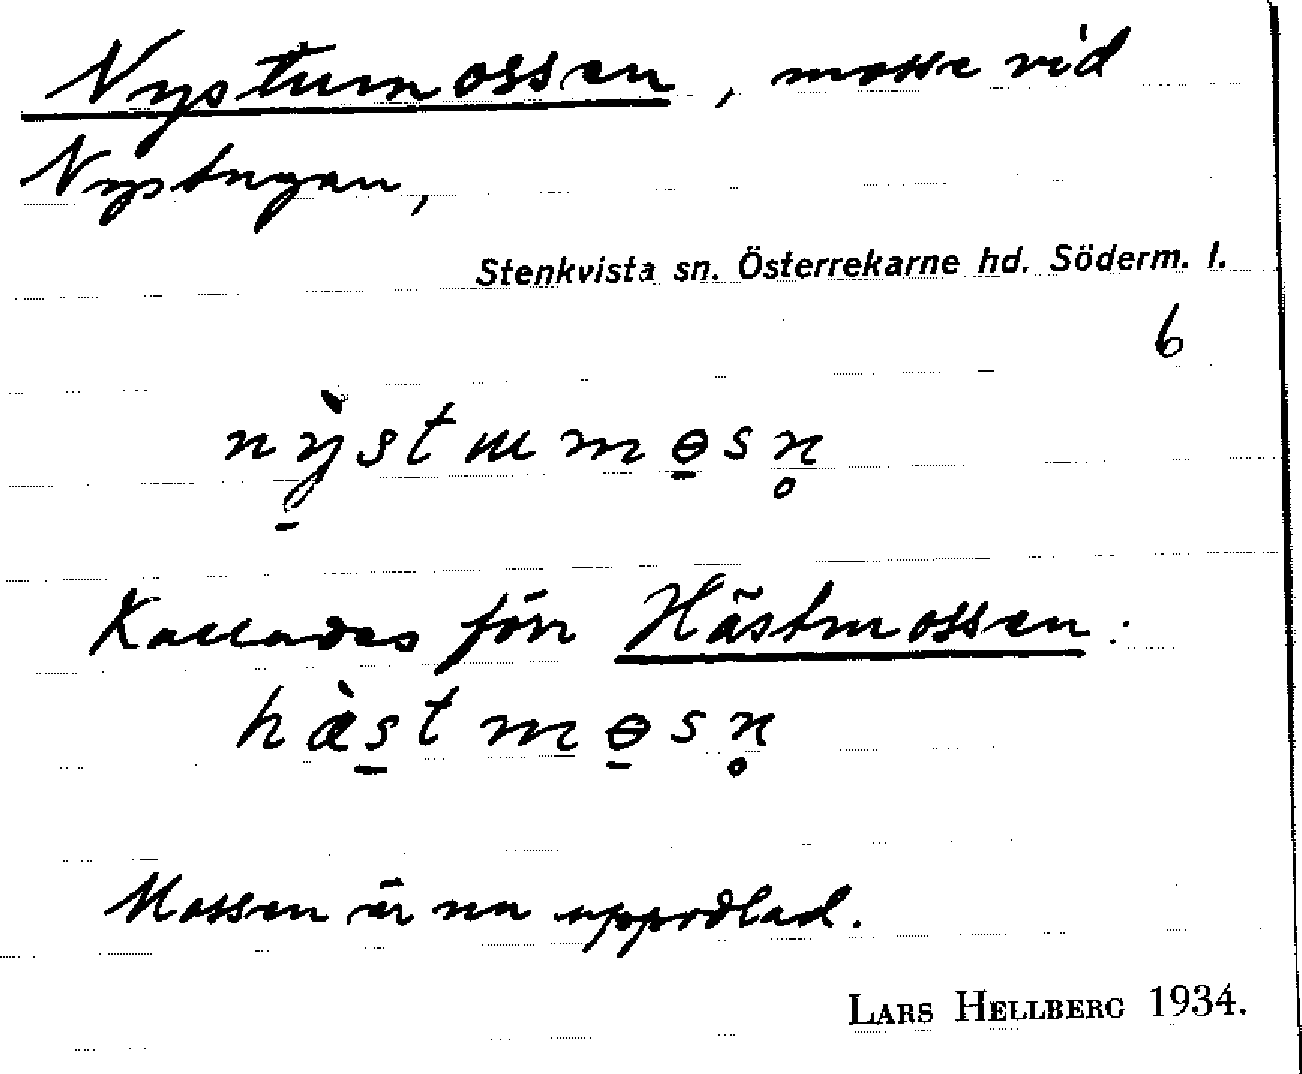 Nystumossen, mosse vid
Nystugan,
Stenkvista sn. Österrekarne hd. Söderm. l.
6
nỳ̠stummɵ̠sn̥
Kallades förr Hästmossen:
hàs̠tmɵ̠sn̥
Mossen är nu uppodlad.
LARS HELLBERG 1934.